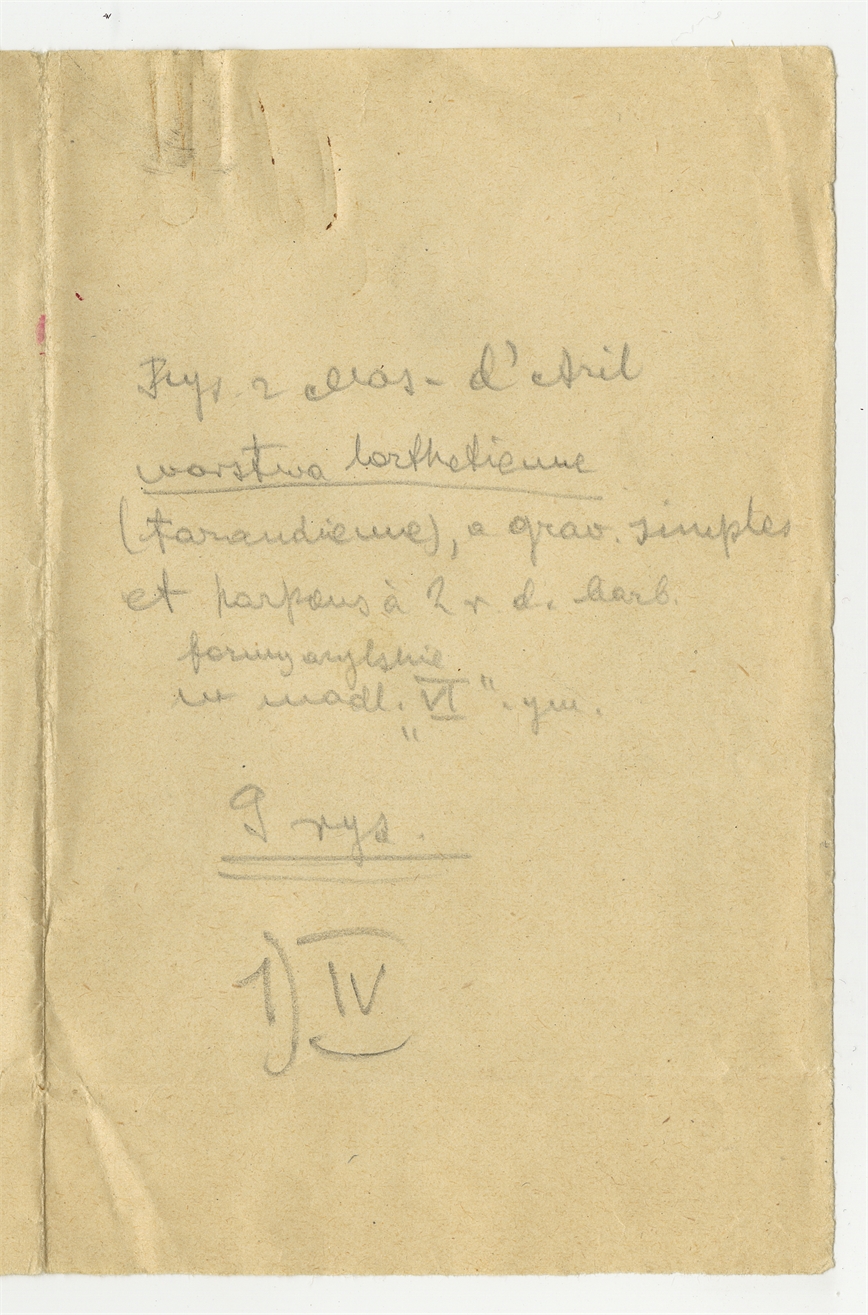 Rys z Mas-d'Azil
warstwa lorthetienne
(tarandienne), a grav. simples
et harpons à 2 r. d. barb.
w madl. "VI". ym.
9 rys.
1) IV